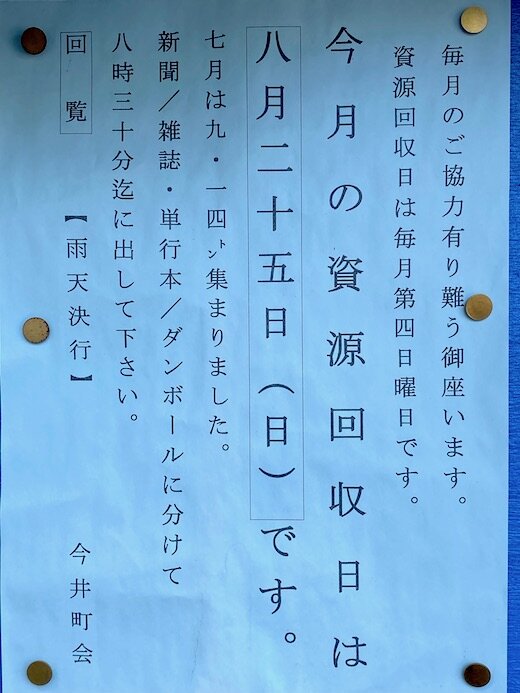 毎月のご協力有り難う御座います。
資源回収日は毎月第四日曜日です。
今月の資源回収日は
八月二十五日（日）です。
七月は九・一四㌧集まりました。
新聞／雑誌・単行本／ダンボールに分けて
八時三十分迄に出して下さい。
回覧 【雨天決行】 今井町会